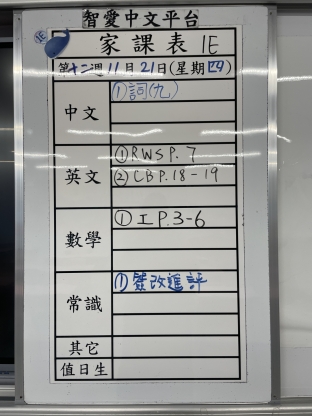 智愛中文平台
1E 家課表 1E
第十二週11月21日(星期四)
中文 ①詞(九)
英文 ①RWS P.7
②CB P.18-19
數學 ①工P.3-6
常識 ①簽改進評
其它
值日生